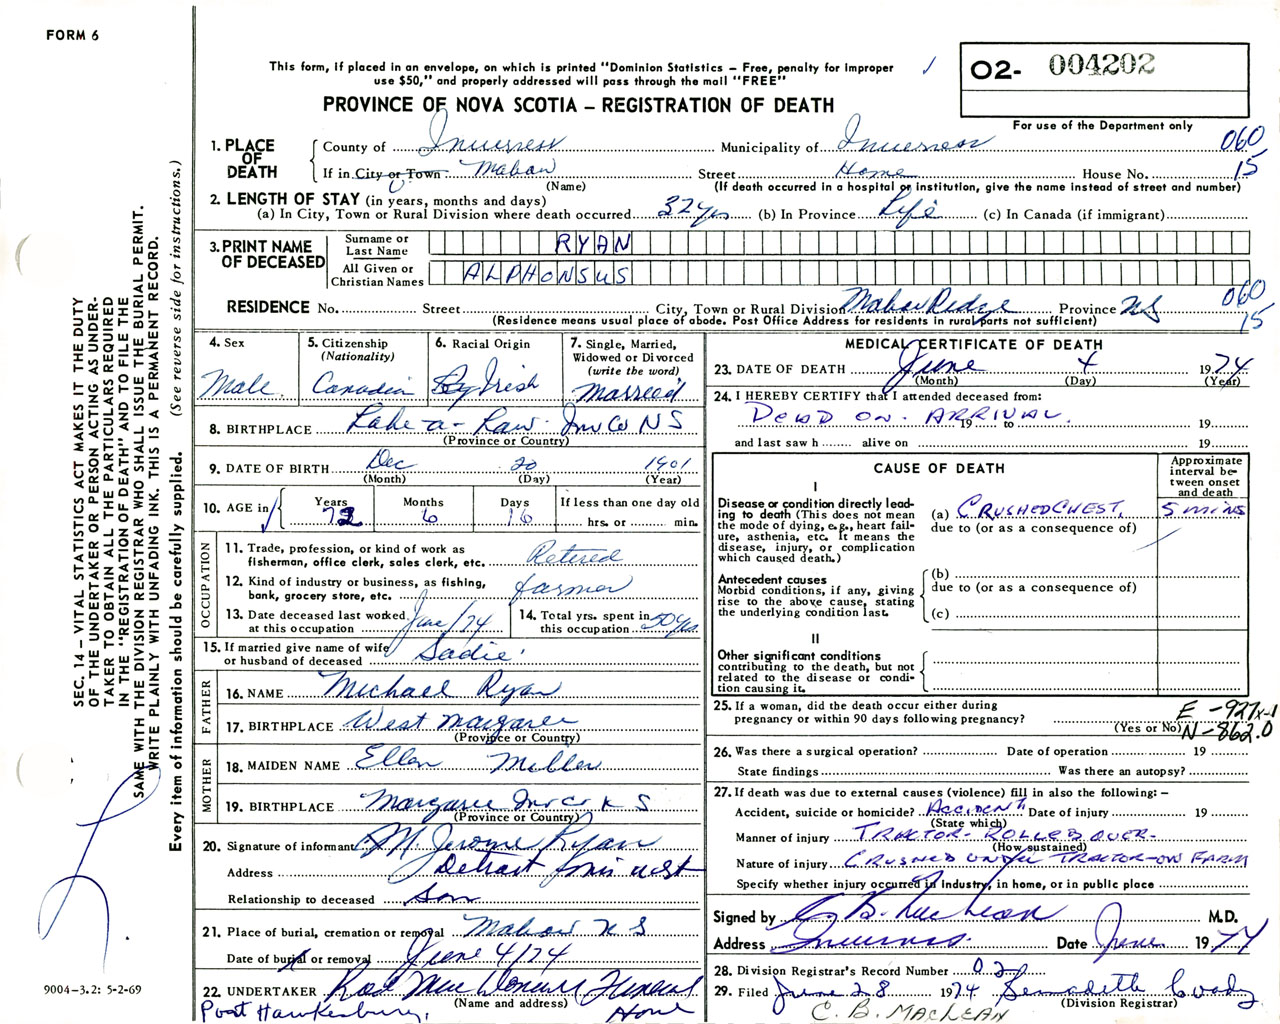 FORM 6
This form, if placed in an envelope, on which is printed "Dominion Statistics – Free, penalty for improper
use $50," and properly addressed will pass through the mail "FREE"
O2- 004202
PROVINCE OF NOVA SCOTIA – REGISTRATION OF DEATH
For use of the Department only
1. PLACE OF DEATH
County of Inverness Municipality of Inverness 060
If in City or Town Mabou Street Home House No. 15
(Name) (If death occurred in a hospital or institution, give the name instead of street and number)
2. LENGTH OF STAY (in years, months and days)
(a) In City, Town or Rural Division where death occurred 32 yrs (b) In Province Life (c) In Canada (if immigrant)
3. PRINT NAME OF DECEASED
Surname or Last Name RYAN
All Given or Christian Names ALPHONSUS
RESIDENCE No. Street City, Town or Rural Division Mabou Ridge Province NS 060 15
(Residence means usual place of abode. Post Office Address for residents in rural parts not sufficient)
4. Sex
Male
5. Citizenship
(Nationality)
Canadian
6. Racial Origin
Irish
7. Single, Married,
Widowed or Divorced
(write the word)
Married
8. BIRTHPLACE Lake-a-Law Inv Co NS
(Province or Country)
9. DATE OF BIRTH Dec 20 1901
(Month) (Day) (Year)
10. AGE in
Years Months Days If less than one day old
72 6 16 hrs. or min.
OCCUPATION
11. Trade, profession, or kind of work as
fisherman, office clerk, sales clerk, etc. Retired
12. Kind of industry or business, as fishing,
bank, grocery store, etc. farmer
13. Date deceased last worked
at this occupation June/74
14. Total yrs. spent in
this occupation 50 yrs.
15. If married give name of wife
or husband of deceased Sadie
FATHER
16. NAME Michael Ryan
17. BIRTHPLACE West Margaree
(Province or Country)
MOTHER
18. MAIDEN NAME Ellen Miller
19. BIRTHPLACE Margaree Inv Co N S
(Province or Country)
20. Signature of informant M. Jerome Ryan
Address Detroit
Relationship to deceased Son
21. Place of burial, cremation or removal Mabou N S
Date of burial or removal June 4/74
22. UNDERTAKER Rod Funeral Home
(Name and address)
Port Hawkesbury.
MEDICAL CERTIFICATE OF DEATH
23. DATE OF DEATH June 4 1974
(Month) (Day) (Year)
24. I HEREBY CERTIFY that I attended deceased from:
DEAD ON ARRIVAL.
19 to 19
and last saw h alive on 19
CAUSE OF DEATH
Approximate
interval be-
tween onset
and death
I
Disease or condition directly lead-
ing to death (This does not mean
the mode of dying, e.g., heart fail-
ure, asthenia, etc. It means the
disease, injury, or complication
which caused death.)
(a) CRUSHED CHEST. 5 mins
due to (or as a consequence of)
Antecedent causes
Morbid conditions, if any, giving
rise to the above cause, stating
the underlying condition last.
(b)
due to (or as a consequence of)
(c)
II
Other significant conditions
contributing to the death, but not
related to the disease or condi-
tion causing it.
25. If a woman, did the death occur either during
pregnancy or within 90 days following pregnancy?
(Yes or No)
E - 927x-1
N - 862.0
26. Was there a surgical operation? Date of operation 19
State findings Was there an autopsy?
27. If death was due to external causes (violence) fill in also the following: –
Accident, suicide or homicide? ACCIDENT Date of injury 19
(State which)
Manner of injury TRACTOR - ROLLED OVER -
(How sustained)
Nature of injury CRUSHED UNDER TRACTOR - ON FARM
Specify whether injury occurred in Industry, in home, or in public place
Signed by C. B. MacLean M.D.
Address Inverness. Date June 1974
28. Division Registrar's Record Number 02
29. Filed June 28 1974 Bernadette
(Division Registrar)
C. B. MACLEAN
SEC. 14 – VITAL STATISTICS ACT MAKES IT THE DUTY
OF THE UNDERTAKER OR PERSON ACTING AS UNDER-
TAKER TO OBTAIN ALL THE PARTICULARS REQUIRED
IN THE "REGISTRATION OF DEATH" AND TO FILE THE
SAME WITH THE DIVISION REGISTRAR WHO SHALL ISSUE THE BURIAL PERMIT.
WRITE PLAINLY WITH UNFADING INK. THIS IS A PERMANENT RECORD.
Every item of information should be carefully supplied. (See reverse side for instructions.)
9004-3.2: 5-2-69